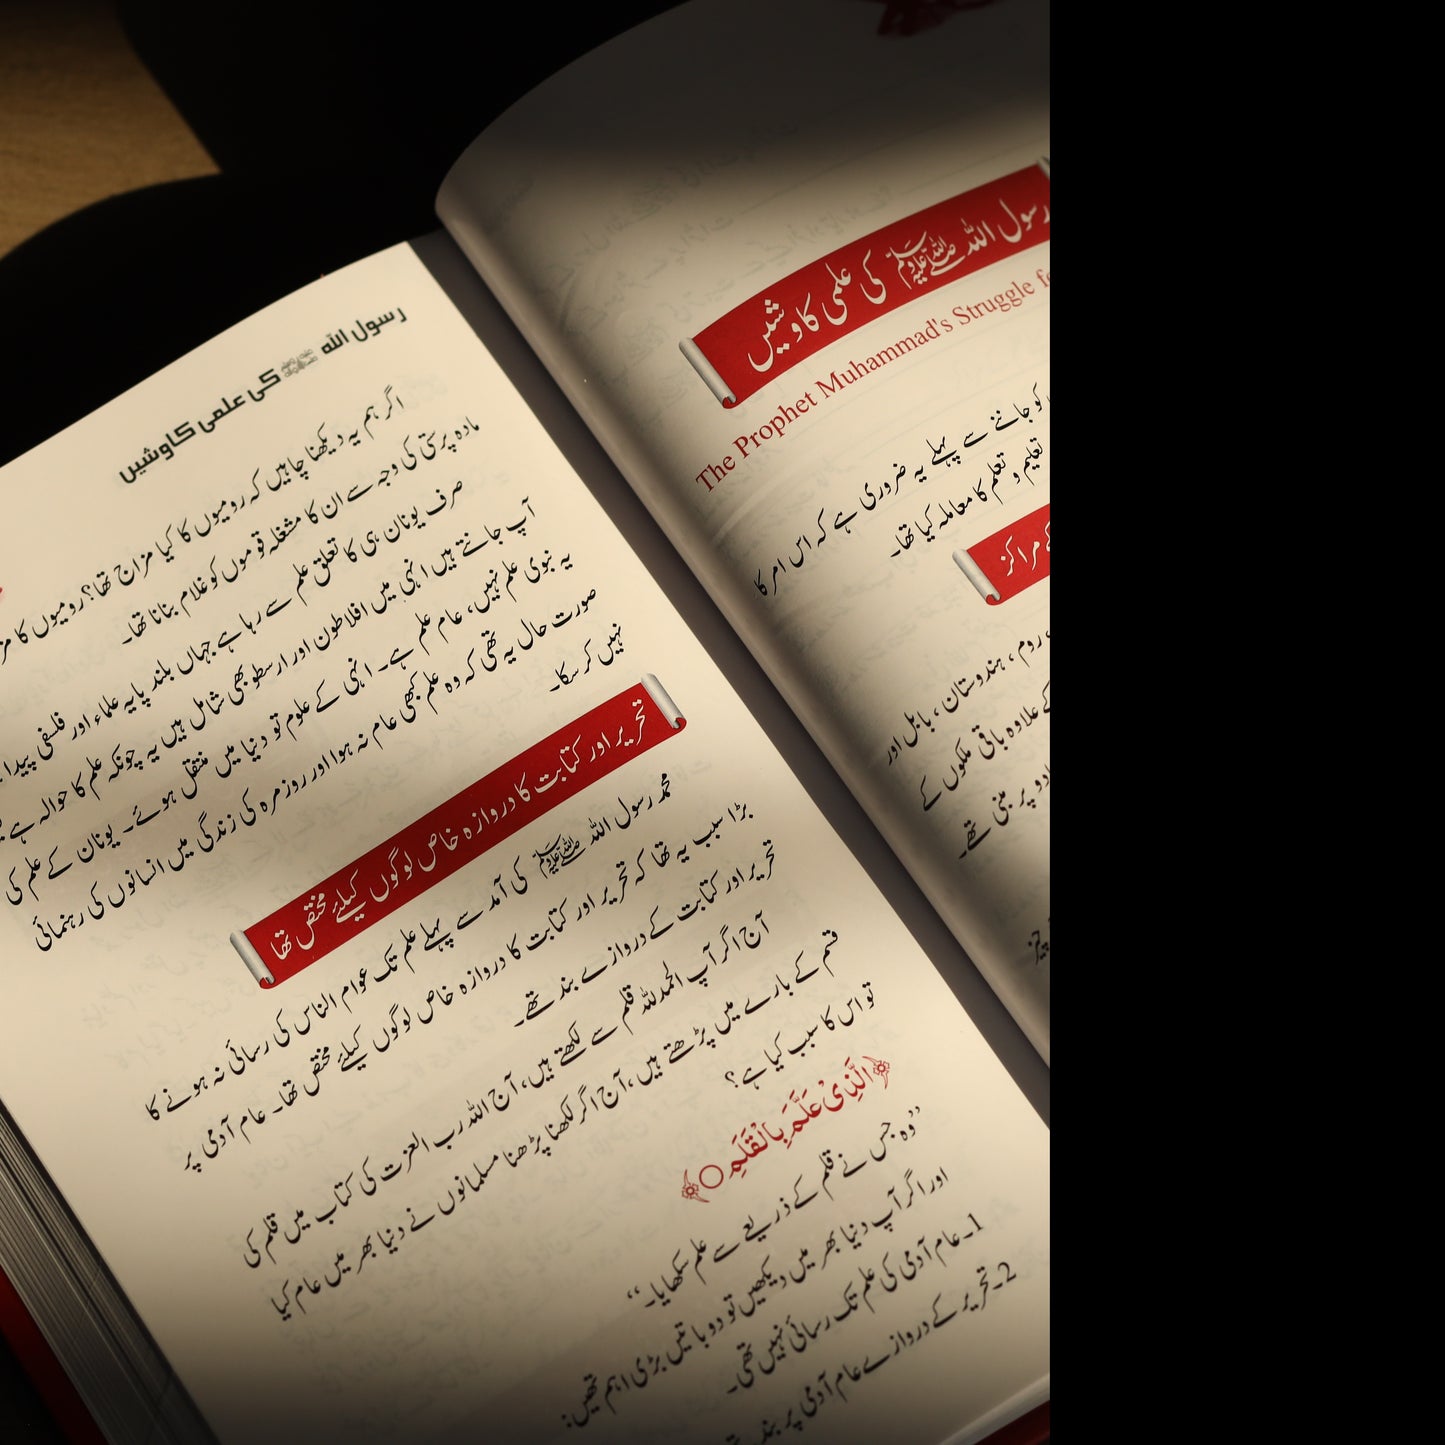 رسول اللہ ﷺ کی علمی کاوشیں
The Prophet Muhammad's Struggle
کو جاننے سے پہلے یہ ضروری ہے کہ اس امر کا
تعلیم و تعلم کا معاملہ کیا تھا۔
مراکز
روم، ہندوستان، بابل اور
کے علاوہ باقی ملکوں کے
پر مبنی تھے۔
چیز
رسول اللہ ﷺ کی علمی کاوشیں
اگر ہم یہ دیکھنا چاہیں کہ رومیوں کا کیا مزاج تھا؟ رومیوں کا
مادہ پرستی کی وجہ سے ان کا مشغلہ قوموں کو غلام بنانا تھا۔
صرف یونان ہی کا تعلق علم سے رہا ہے جہاں بلند پایہ علماء اور فلسفی پیدا
آپ جانتے ہیں انہی میں افلاطون اور ارسطو بھی شامل ہیں یہ چونکہ علم کا حوالہ ہے
یہ نبوی علم نہیں، عام علم ہے۔ انہی کے علوم تو دنیا میں منتقل ہوئے۔ یونان کے علم کی
صورت حال یہ تھی کہ وہ علم کبھی عام نہ ہوا اور روزمرہ کی زندگی میں انسانوں کی رہنمائی
نہیں کر سکا۔
تحریر اور کتابت کا دروازہ خاص لوگوں کیلئے مختص تھا
محمد رسول اللہ ﷺ کی آمد سے پہلے علم تک عوام الناس کی رسائی نہ ہونے کا
بڑا سبب یہ تھا کہ تحریر اور کتابت کا دروازہ خاص لوگوں کیلئے مختص تھا۔ عام آدمی پر
تحریر اور کتابت کے دروازے بند تھے۔
آج اگر آپ الحمدللہ قلم سے لکھتے ہیں، آج اللہ رب العزت کی کتاب میں قلم کی
قسم کے بارے میں پڑھتے ہیں، آج اگر لکھنا پڑھنا مسلمانوں نے دنیا بھر میں عام کیا
تو اس کا سبب کیا ہے؟
﴿الَّذِیْ عَلَّمَ بِالْقَلَمِ○﴾
”وہ جس نے قلم کے ذریعے سے علم سکھایا۔“
اور اگر آپ دنیا بھر میں دیکھیں تو دو باتیں بڑی اہم تھیں:
1۔ عام آدمی کی علم تک رسائی نہیں تھی۔
2۔ تحریر کے دروازے عام آدمی پر بند